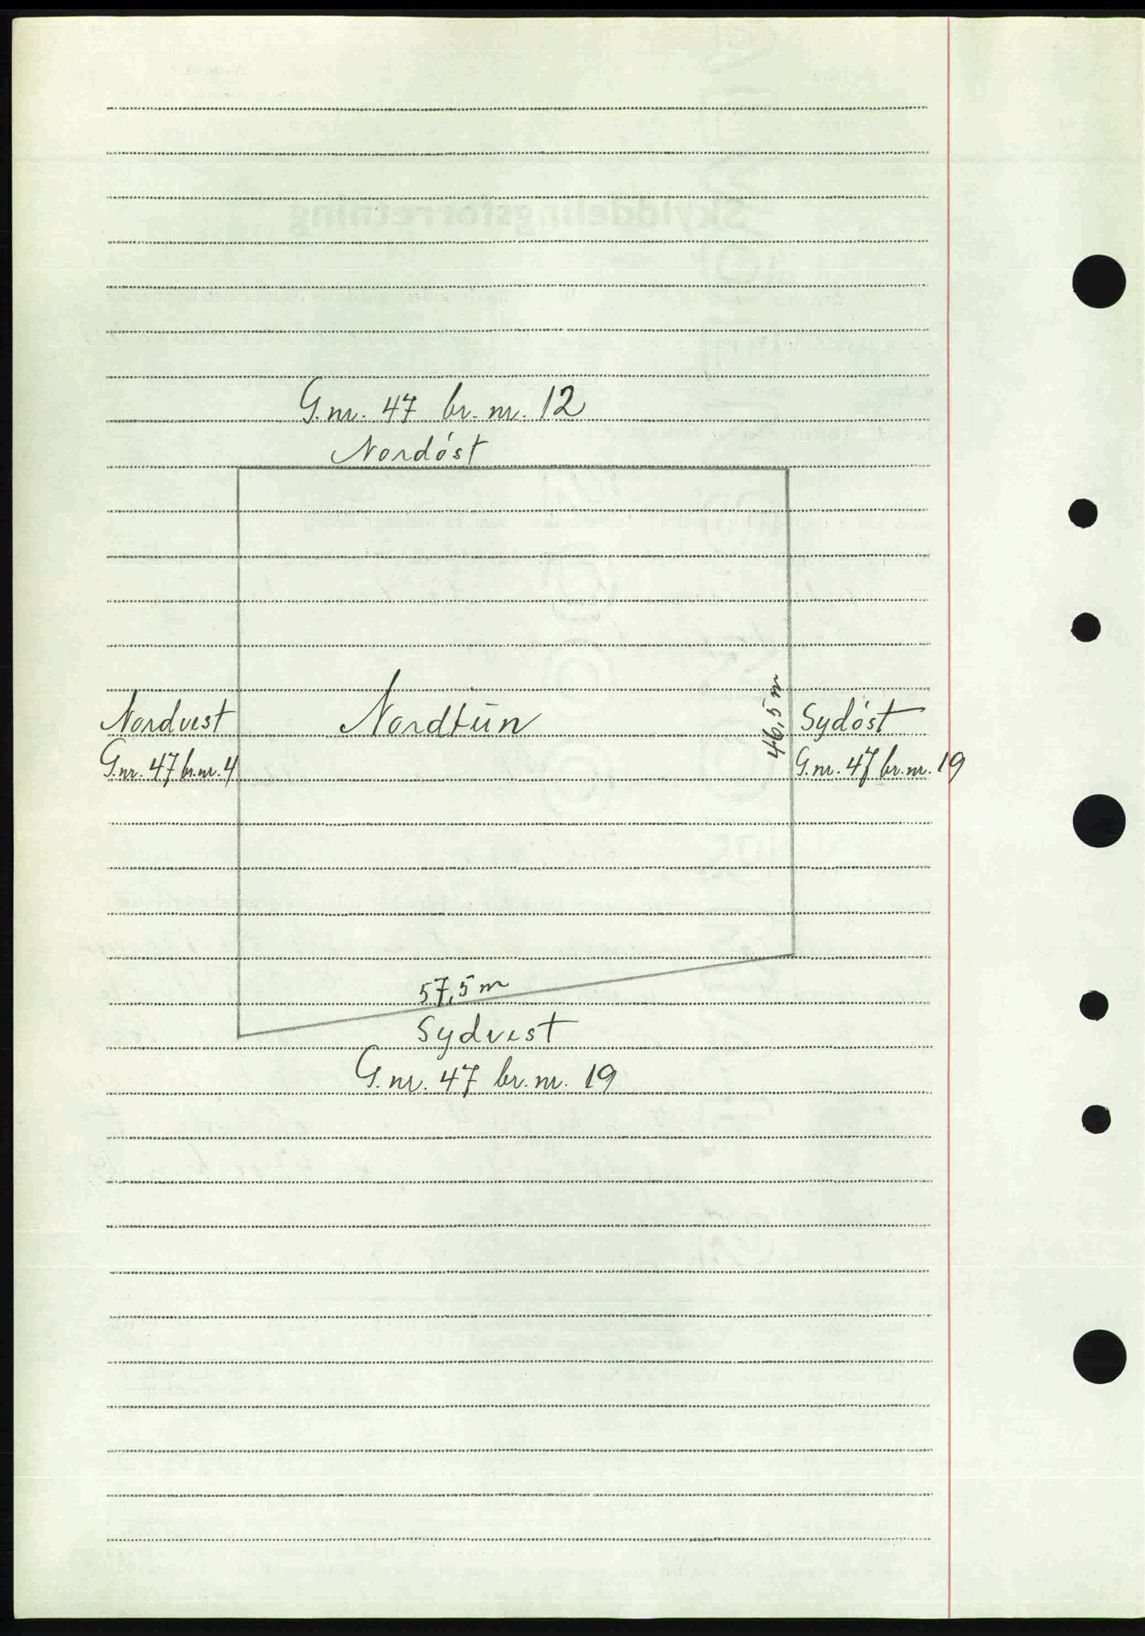 G.nr. 47 br. nr. 12
Nordóst
Nordvest
G.nr. 47 br.nr. 4
Nordtun
46,5 m
Sydóst
G.nr. 47 br.nr. 19
57,5 m
Sydvest
G.nr. 47 br.nr. 19
Skylddelingsforretning